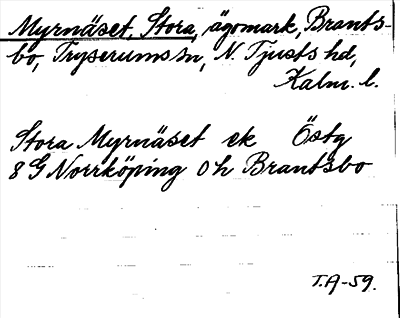 Myrnäset, Stora, ägomark, Brants-
bo, Tryserums sn, N. Tjusts hd,
Kalm. l.
Stora Myrnäset ek Östg
8 G Norrköping 0 h Brantsbo
T.A-59.